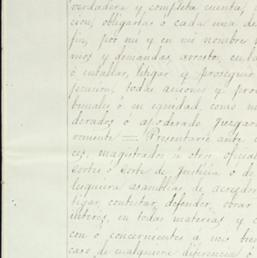 verdadera y completa cuenta,
cion, obligarlos ó cada uno de
fin, por mí y en mi nombre
mos y demandas, arrestar,
ó entablar, litigar y proseguir
, todas acciones y
bunales ó en equidad, como
derados ó apoderado juzgara
vamente — Presentarse ante
ces, magistrados ú otros oficiale
corte ó corte de justicia o de
lesquiera asambleas de acreedor
tigar, contestar, defender, obrar
interes, en todas materias y
con ó concernientes á mis bien
caso de cualquiera diferencia ó